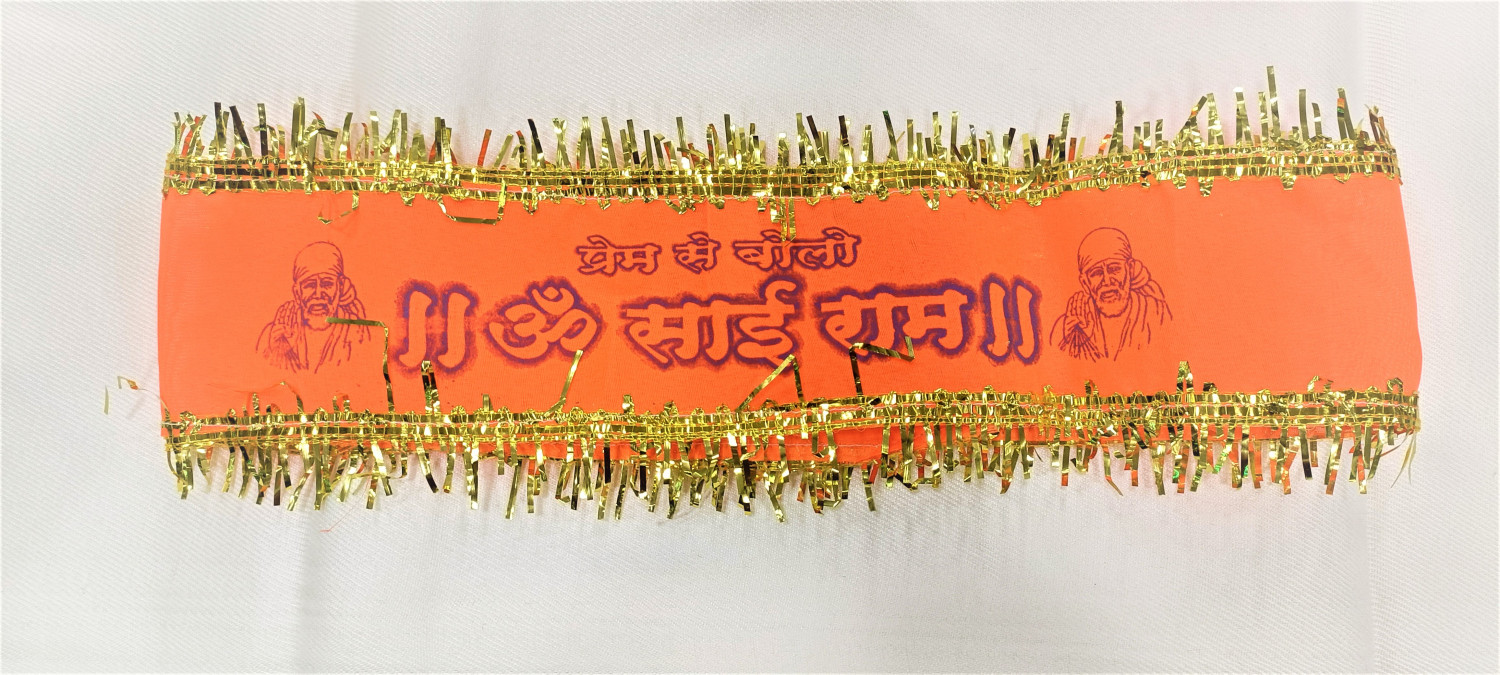 प्रेम से बोलो
॥ ॐ साई राम ॥